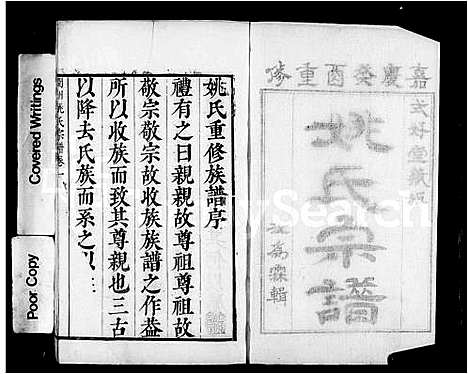 嘉慶癸酉重修
姚氏宗譜
姚氏重修族譜序
禮有之曰親親故尊祖尊祖故
敬宗敬宗故收族族譜之作葢
所以收族而致其尊親也三古
以降去氏族而系之以
Covered Writings
Poor Copy
Search